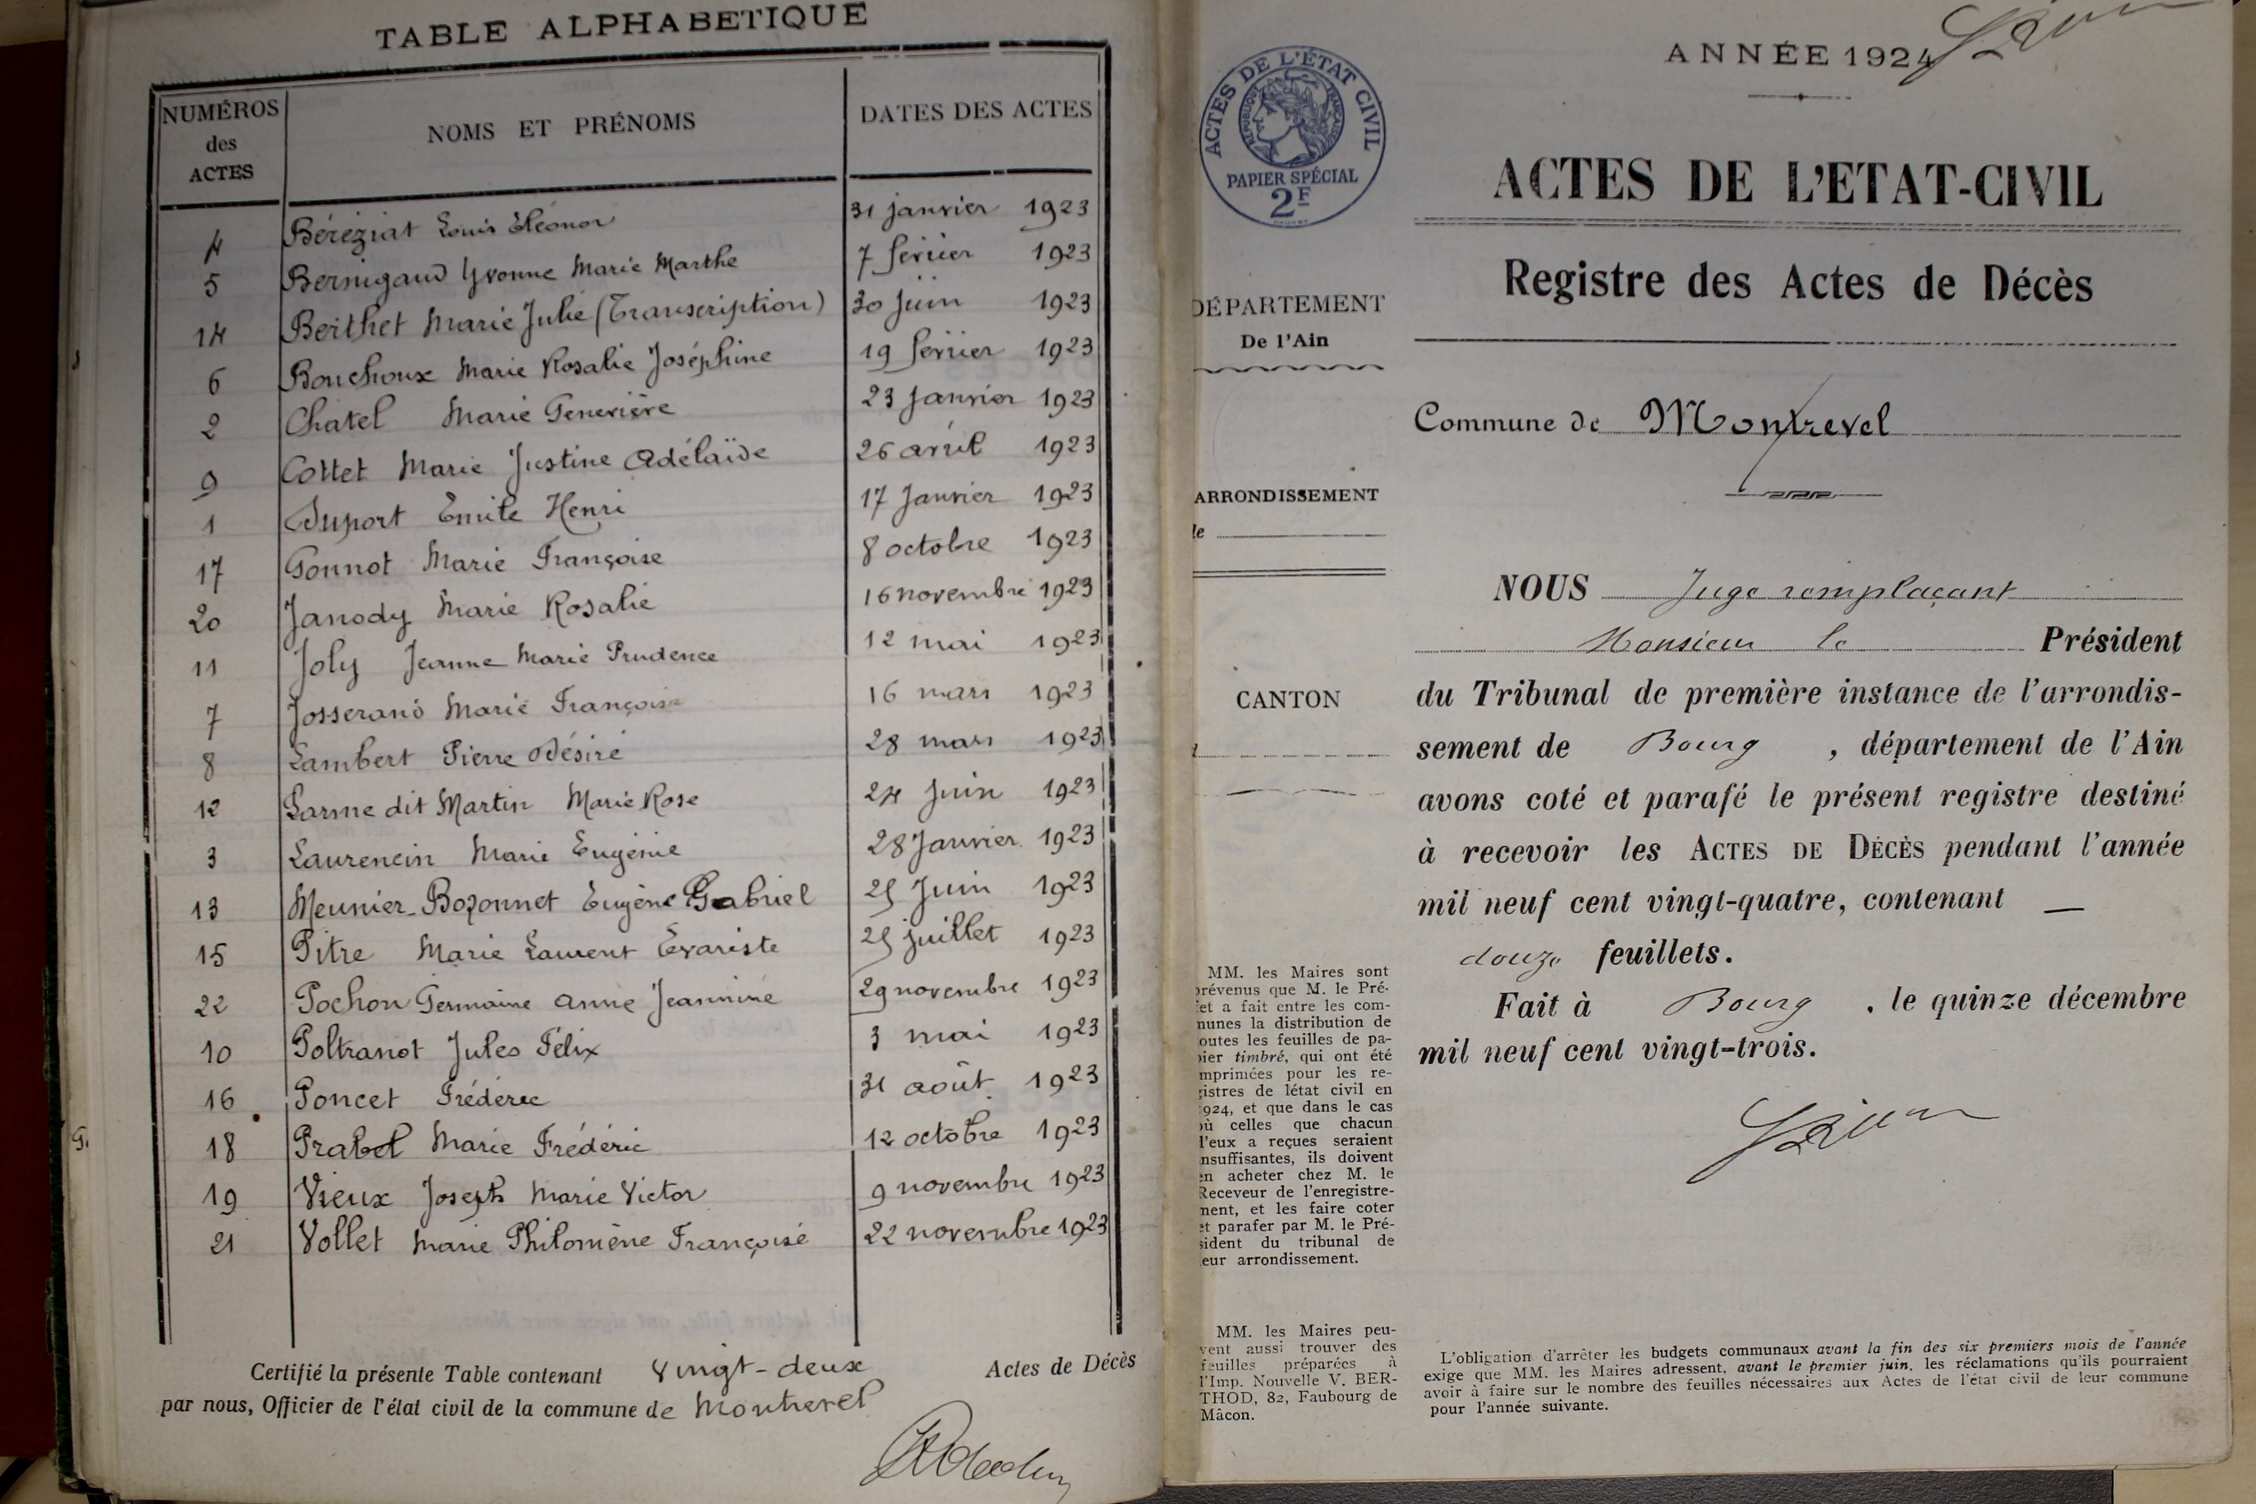 TABLE ALPHABETIQUE
NUMÉROS des ACTES NOMS ET PRÉNOMS DATES DES ACTES
4 Béréziat Louis Eléonor 31 janvier 1923
5 Bernigaud Yvonne Marie Marthe 7 février 1923
14 Berthet Marie Julie (Transcription) 30 juin 1923
6 Bouchoux Marie Rosalie Joséphine 19 février 1923
2 Chatel Marie Geneviève 23 Janvier 1923
9 Cottet Marie Justine Adélaïde 26 avril 1923
1 Duport Emile Henri 17 Janvier 1923
17 Gonnot Marie Françoise 8 octobre 1923
20 Janody Marie Rosalie 16 novembre 1923
11 Joly Jeanne Marie Prudence 12 mai 1923
7 Josserand Marie Françoise 16 mars 1923
8 Lambert Pierre Désiré 28 mars 1923
12 Larme dit Martin Marie Rose 24 juin 1923
3 Laurencin Marie Eugénie 28 Janvier 1923
13 Meunier-Bozonnet Eugène Gabriel 25 Juin 1923
15 Pitre Marie Laurent Evariste 25 juillet 1923
22 Pochon Germaine Anne Jeannine 29 novembre 1923
10 Poltranot Jules Félix 3 mai 1923
16 Poncet Frédéric 31 août 1923
18 Prabel Marie Frédéric 12 octobre 1923
19 Vieux Joseph Marie Victor 9 novembre 1923
21 Vollet Marie Philomène Françoise 22 novembre 1923
Certifié la présente Table contenant Vingt-deux Actes de Décès
par nous, Officier de l'état civil de la commune de Montrevel
ANNÉE 1924
ACTES DE L'ÉTAT CIVIL
RÉPUBLIQUE FRANÇAISE
PAPIER SPÉCIAL
2F
DÉPARTEMENT
De l'Ain
ARRONDISSEMENT
CANTON
MM. les Maires sont
prévenus que M. le Pré-
fet a fait entre les com-
munes la distribution de
toutes les feuilles de pa-
pier timbré, qui ont été
imprimées pour les re-
gistres de létat civil en
1924, et que dans le cas
où celles que chacun
d'eux a reçues seraient
insuffisantes, ils doivent
en acheter chez M. le
Receveur de l'enregistre-
ment, et les faire coter
et parafer par M. le Pré-
sident du tribunal de
leur arrondissement.
MM. les Maires peu-
vent aussi trouver des
feuilles préparées à
l'Imp. Nouvelle V. BER-
THOD, 82, Faubourg de
Mâcon.
ACTES DE L'ETAT-CIVIL
Registre des Actes de Décès
Commune de Montrevel
NOUS Juge remplaçant
Monsieur le Président
du Tribunal de première instance de l'arrondis-
sement de Bourg, département de l'Ain
avons coté et parafé le présent registre destiné
à recevoir les ACTES DE DÉCÈS pendant l'année
mil neuf cent vingt-quatre, contenant —
douze feuillets.
Fait à Bourg, le quinze décembre
mil neuf cent vingt-trois.
L'obligation d'arrêter les budgets communaux avant la fin des six premiers mois de l'année
exige que MM. les Maires adressent, avant le premier juin, les réclamations qu'ils pourraient
avoir à faire sur le nombre des feuilles nécessaires aux Actes de l'état civil de leur commune
pour l'année suivante.